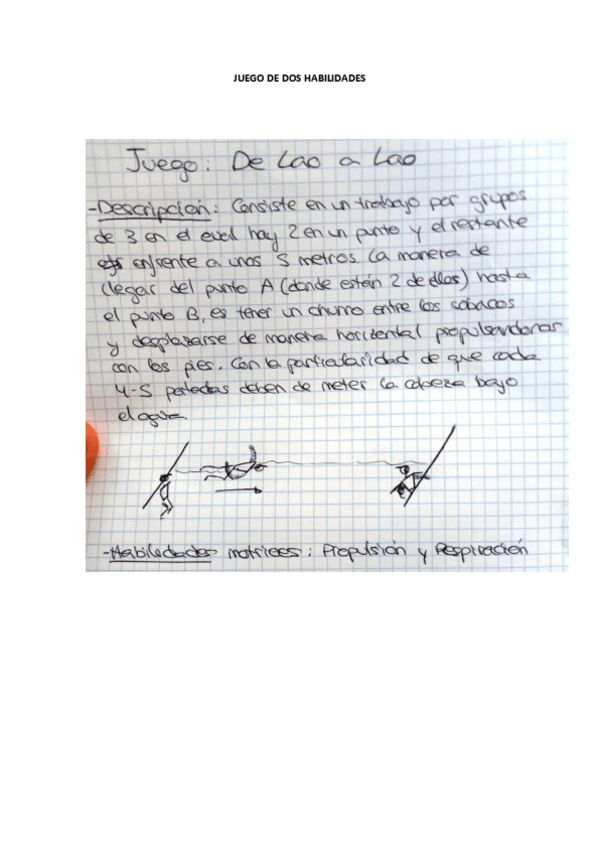 JUEGO DE DOS HABILIDADES
Juego: De Lao a Lao
-Descripción: Consiste en un trabajo por grupos
de 3 en el cual hay 2 en un punto y el restante
enfrente a unos 5 metros. La manera de
llegar del punto A (donde están 2 de ellos) hasta
el punto B, es tener un churro entre los sobacos
y desplazarse de manera horizontal propulsandonos
con los pies. Con la particularidad de que cada
4-5 patadas deben de meter la cabeza bajo
el agua.
-Habilidades motrices: Propulsión y Respiración